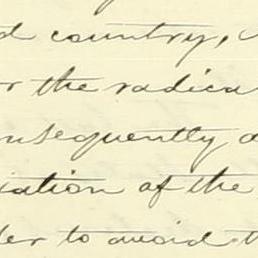 d country,
r the radica
nsequently a
iation of the
der to avoid t